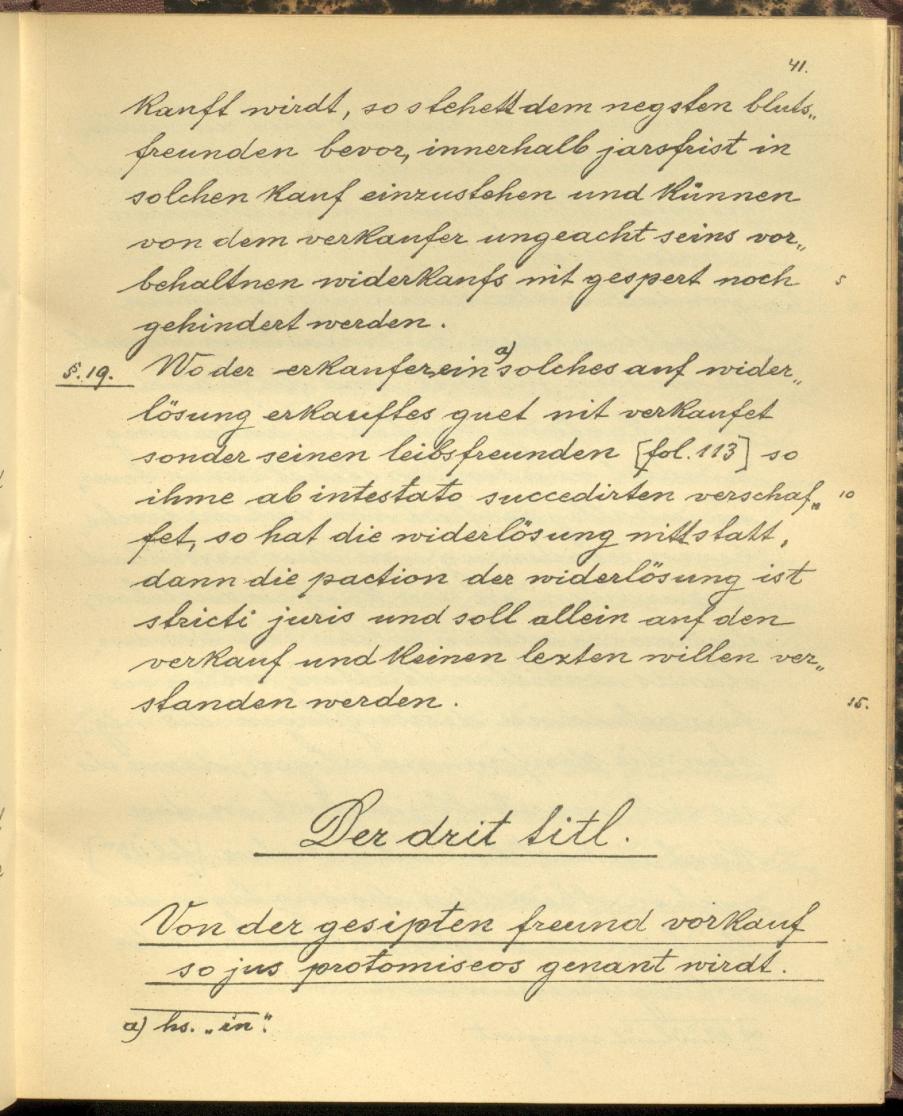 41.
kauft wirdt, so stehett dem negsten bluts„
freunden bevor, innerhalb jarsfrist in
solchen kauf einzustehen und künnen
von dem verkaufer ungeacht seins vor„
behaltnen widerkaufs nit gespert noch 5
gehindert werden.
§. 19. Wo der erkaufer ein a) solches auf wider„
lösung erkauftes guet nit verkaufet
sonder seinen leibsfreunden [fol. 113] so
ihme ab intestato succedirten verschaf„ 10
fet, so hat die widerlösung nitt statt,
dann die paction der widerlösung ist
stricti juris und soll allein auf den
verkauf und keinen lezten willen ver„
standen werden. 15.
Der drit titl.
Von der gesipten freund vorkauf
so jus protomiseos genant wirdt.
a) hs. „in“.